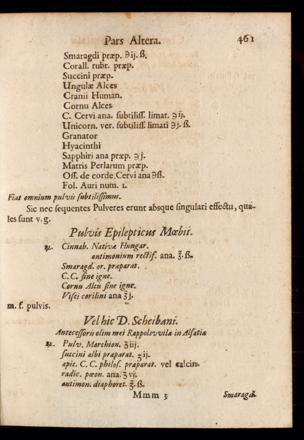 Pars Altera. 461
Smaragdi præp. ℈ij. ß.
Corall. rubr. præp.
Succini præp.
Ungulæ Alces
Cranii Human.
Cornu Alces
C. Cervi ana. subtiliss. limat. ℈ij.
Unicorn. ver. subtiliss. limati ℈j. ß.
Granator
Hyacinthi
Sapphiri ana præp. ℈j.
Matris Perlarum præp.
Oss. de corde Cervi ana ℈ß.
Fol. Auri num. 1.
Fiat omnium pulvis subtilissimus.
Sic nec sequentes Pulveres erunt absque singulari effectu, qua-
les sunt v. g.
Pulvis Epilepticus Mœbii.
℞. Cinnab. Nativæ Hungar.
antimonium rectif. ana. ʒ. ß.
Smaragd. or. præparat.
C. C. sine igne.
Cornu Alcis sine igne.
Visci corilini ana ʒj.
m. f. pulvis.
Vel hic D. Scheibani.
Antecessoris olim mei Rappolsvvilæ in Alsatia
℞. Pulv. Marchion. ʒiij.
succini albi præparat. ʒij.
C. C. philos. præparat. vel calcin.
radic. pæon. ana. ʒvj.
antimon. diaphoret. ʒ. ß.
Mmm 3 Smaragd.